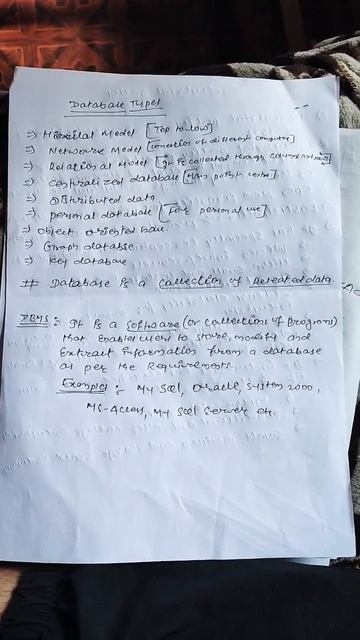 Database Types
⇒ Hierarical Model [Top to low]
⇒ Network Model [conection of different computer]
⇒ Relational Model [It is collected through column & row]
⇒ centralized database [Main point centre]
⇒ Distributed data
⇒ personal database [For personal use]
⇒ object oriented base
⇒ Graph database
⇒ Key database
# Database is a collection of Releated data.
DBMS : It is a Software (or collection of programs)
that enables user to store, modify and
Extract information from a database
as per the Requirements
Examples : My Sql, Oracle, System 2000,
MS-Access, My Sql Server etc.